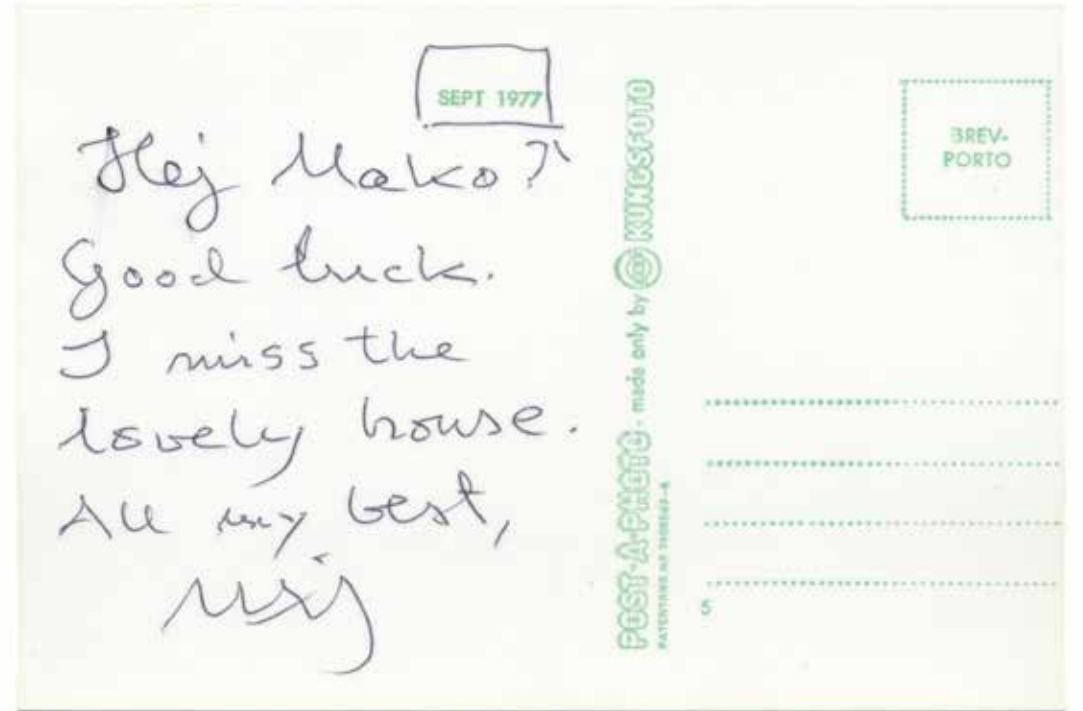 SEPT 1977
Hej Mako?
Good luck.
I miss the
lovely house.
All my best,
POST-A-PHOTO - made only by KUNGSFOTO
BREV-
PORTO
5